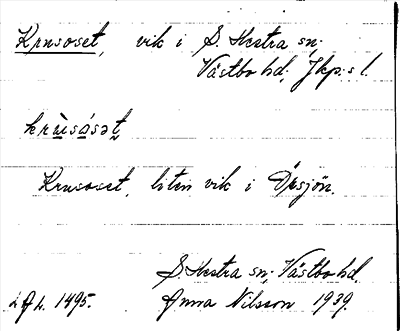 Krusoset, vik i S. Hestra sn;
Västbo hd; Jkp:s l.
krùsásət
Krusoset, liten vik i Örsjön.
S. Hestra sn; Västbo hd.
Anna Nilsson 1939.
1495.